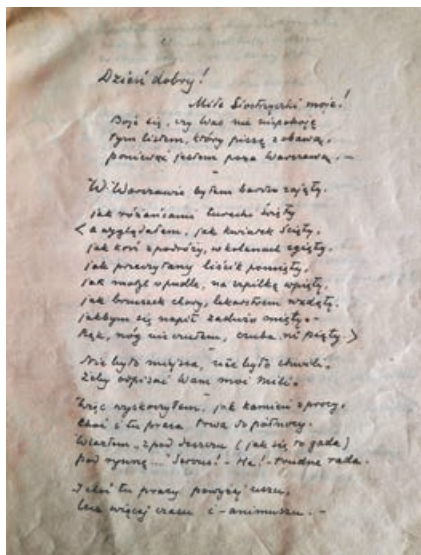 Dzień dobry!
Miłe Siostrzyczki moje!
Boję się, czy Was nie niepokoję
tym listem, który piszę z obawą,
ponieważ jestem poza Warszawą. -
W Warszawie byłem bardzo zajęty.
jak różańcami turecki święty
(a wyglądałem, jak kwiatek ścięty,
jak koń z podróży, w kolanach zgięty,
jak przeczytany liścik pomięty,
jak motyl w pudle, na szpilkę wpięty,
jak brzuszek chory, lekarstwem wzdęty,
jakbym się napił zadużo mięty. -
Rąk, nóg nie czułem, czuba ni pięty.)
Nie było miejsca, nie było chwili,
żeby odpisać Wam moi mili.
Więc wyskoczyłem, jak kamień z procy.
Choć i tu praca trwa do północy.
Wpadłem "z pod deszczu (jak się to gada)
pod rynnę..." Servus! - Ha! - trudna rada.
Jeśli tu pracy powyżej uszu,
lecz więcej czasu i - animuszu. -